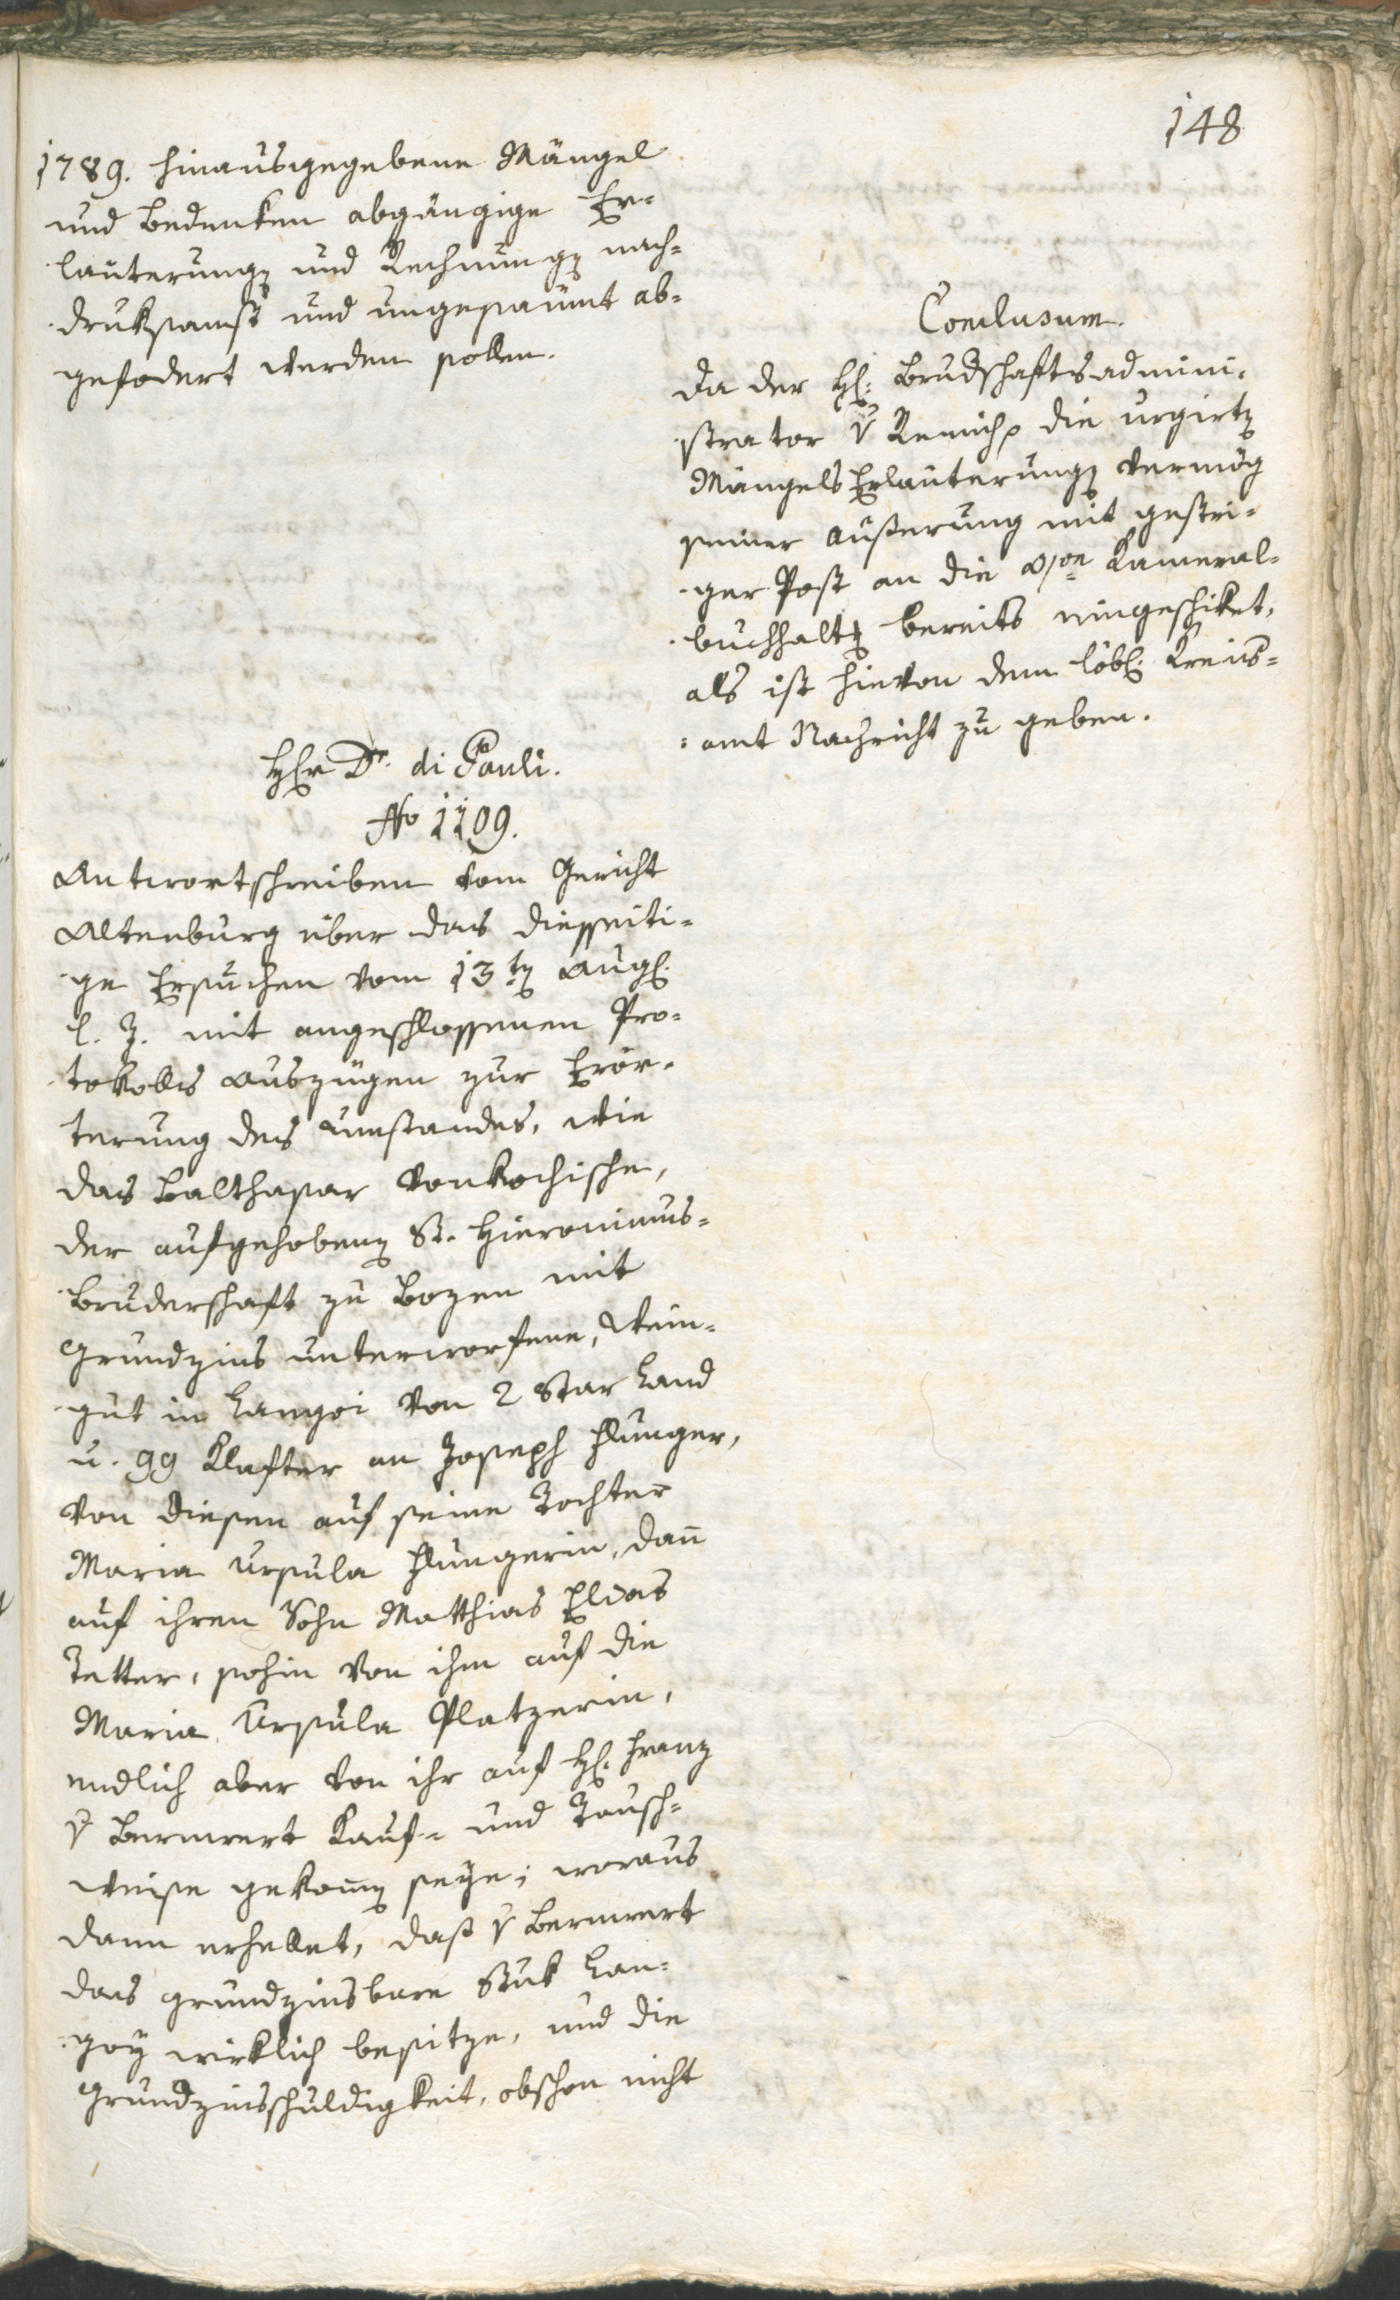 148
1789. hinausgegebene Mängel
und Bedenken abgängige Er¬
läuterungen und Rechnungen nach¬
druksamst und ungesäumt ab¬
gefodert werden sollen.
Conclusum.
Da der H: Brudschaftsadmini¬
strator v Remich die urgirten
Mängels Erläuterungen vermög
seiner Äußerung mit gestri¬
ger Post an die Kameral¬
buchhaltg bereits eingeschiket,
als ist hievon dem löbl: Kreis¬
amt Nachricht zu geben.
Hr Dr. di Pauli.
No 1109.
Antwortschreiben vom Gericht
Altenburg über das diesseiti¬
ge Ersuchen vom 13ten Aug:
l. J. mit angeschlossenen Pro¬
tokolls Auszügen zur Erör¬
terung des Umstandes, wie
das Balthasar Vonkochische,
der aufgehobenen St. Hieronimus¬
Bruderschaft zu Bozen mit
Grundzins unterworfene, Wein¬
gut in Langoi von 2 Star Land
u. 99 Klafter an Joseph Hunger,
von diesen auf seine Tochter
Maria Ursula Hungerin, dann
auf ihren Sohn Matthias Elias
Jetter, sohin von ihm auf die
Maria Ursula Platzerin,
endlich aber von ihr auf H: Franz
v Bernwert Kauf- und Tausch¬
weise gekommen seye; woraus
dann erhellet, daß v Bernwert
das grundzinsbare Stük Lan¬
goy wirklich besitze, und die
Grundzinsschuldigkeit, obschon nicht